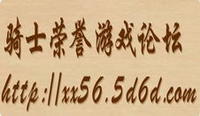 骑士荣誉游戏论坛
http://xx56.5d6d.com